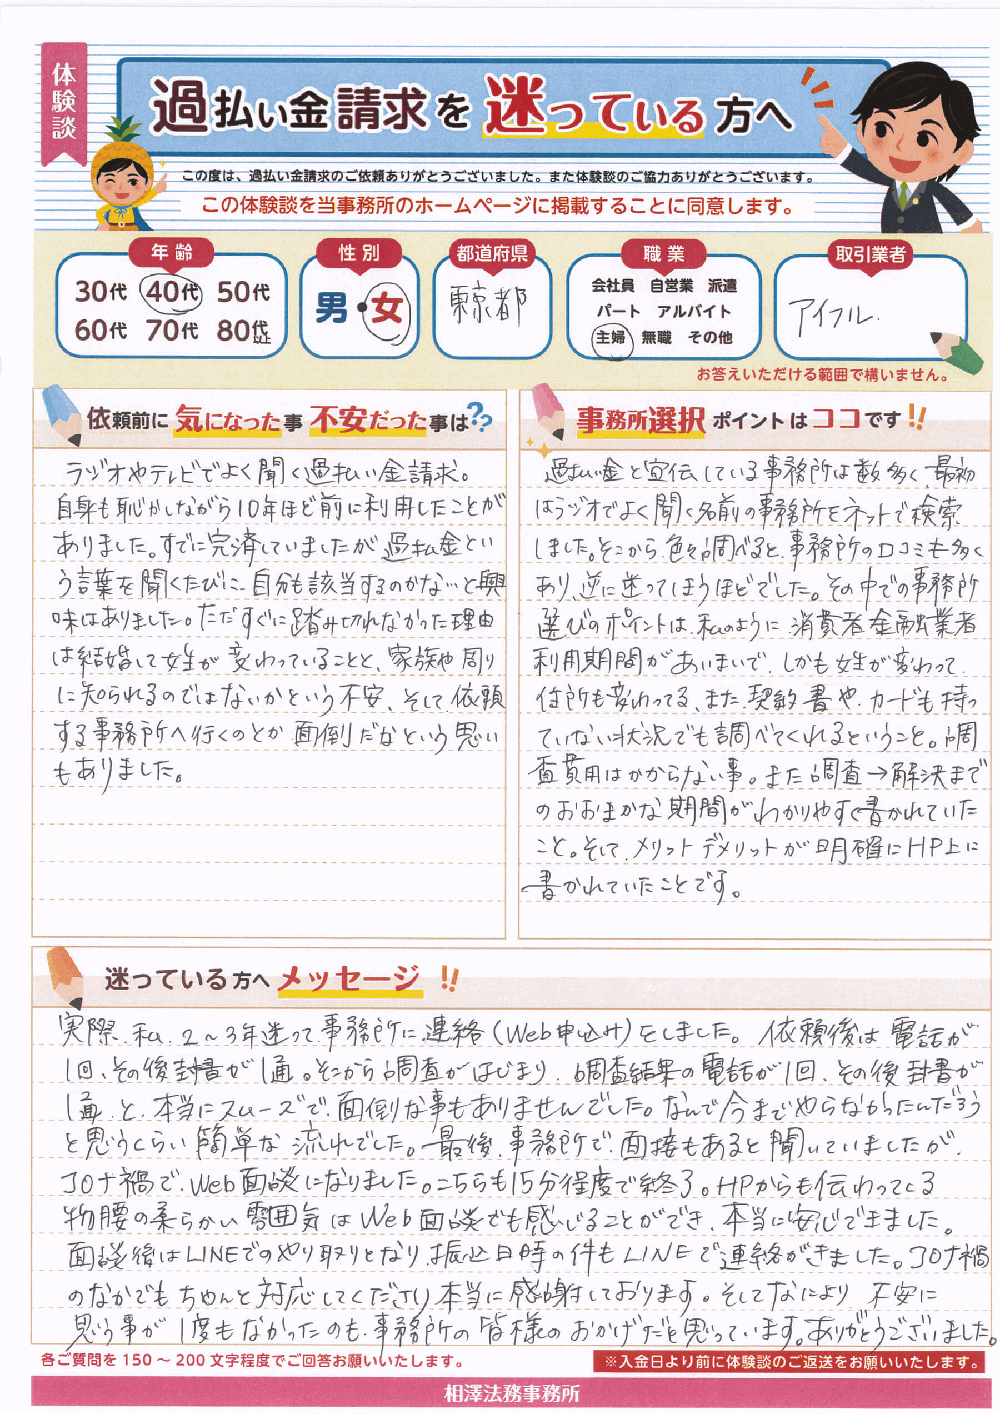 体験談
過払い金請求を迷っている方へ
この度は、過払い金請求のご依頼ありがとうございました。また体験談のご協力ありがとうございます。
この体験談を当事務所のホームページに掲載することに同意します。
年齢
30代 40代 50代
60代 70代 80代以上
性別
男・女
都道府県
東京都
職業
会社員 自営業 派遣
パート アルバイト
主婦 無職 その他
取引業者
アイフル.
お答えいただける範囲で構いません。
依頼前に気になった事 不安だった事は??
ラジオやテレビでよく聞く過払い金請求。
自身も恥かしながら10年ほど前に利用したことが
ありました。すでに完済していましたが過払金とい
う言葉を聞くたびに、自分も該当するのかな…と興
味はありました。ただすぐに踏み切れなかった理由
は結婚して姓が変わっていることと、家族や周り
に知られるのではないかという不安、そして依頼
する事務所へ行くのとか面倒だなという思い
もありました。
事務所選択ポイントはココです!!
過払い金と宣伝している事務所は数多く、最初
はラジオでよく聞く名前の事務所をネットで検索
しました。そこから色々調べると、事務所の口コミも多く
あり、逆に迷ってしまうほどでした。その中での事務所
選びのポイントは、私のように消費者金融業者
利用期間があいまいで、しかも姓が変わって、
住所も変わってる、また、契約書や、カードも持っ
ていない状況でも調べてくれるということ。調
査費用はかからない事。また調査→解決まで
のおおまかな期間がわかりやすく書かれていた
こと。そして、メリットデメリットが明確にHP上に
書かれていたことです。
迷っている方へメッセージ!!
実際、私、2～3年迷って事務所に連絡(Web申込み)をしました。依頼後は電話が
1回、その後封書が1通。そこから調査がはじまり、調査結果の電話が1回、その後封書が
1通、と、本当にスムーズで、面倒な事もありませんでした。なんで今までやらなかったんだろう
と思うくらい簡単な流れでした。最後、事務所で、面接もあると聞いていましたが、
コロナ禍で、Web面談になりました。こちらも15分程度で終了。HPからも伝わってくる
物腰の柔らかい雰囲気はWeb面談でも感じることができ、本当に安心できました。
面談後はLINEでのやり取りとなり、振込日時の件もLINEで連絡がきました。コロナ禍
のなかでもちゃんと対応してくださり本当に感謝しております。そしてなにより不安に
思う事が1度もなかったのも、事務所の皆様のおかげだと思っています。ありがとうございました。
各ご質問を150～200文字程度でご回答お願いいたします。
※入金日より前に体験談のご返送をお願いいたします。
相澤法務事務所